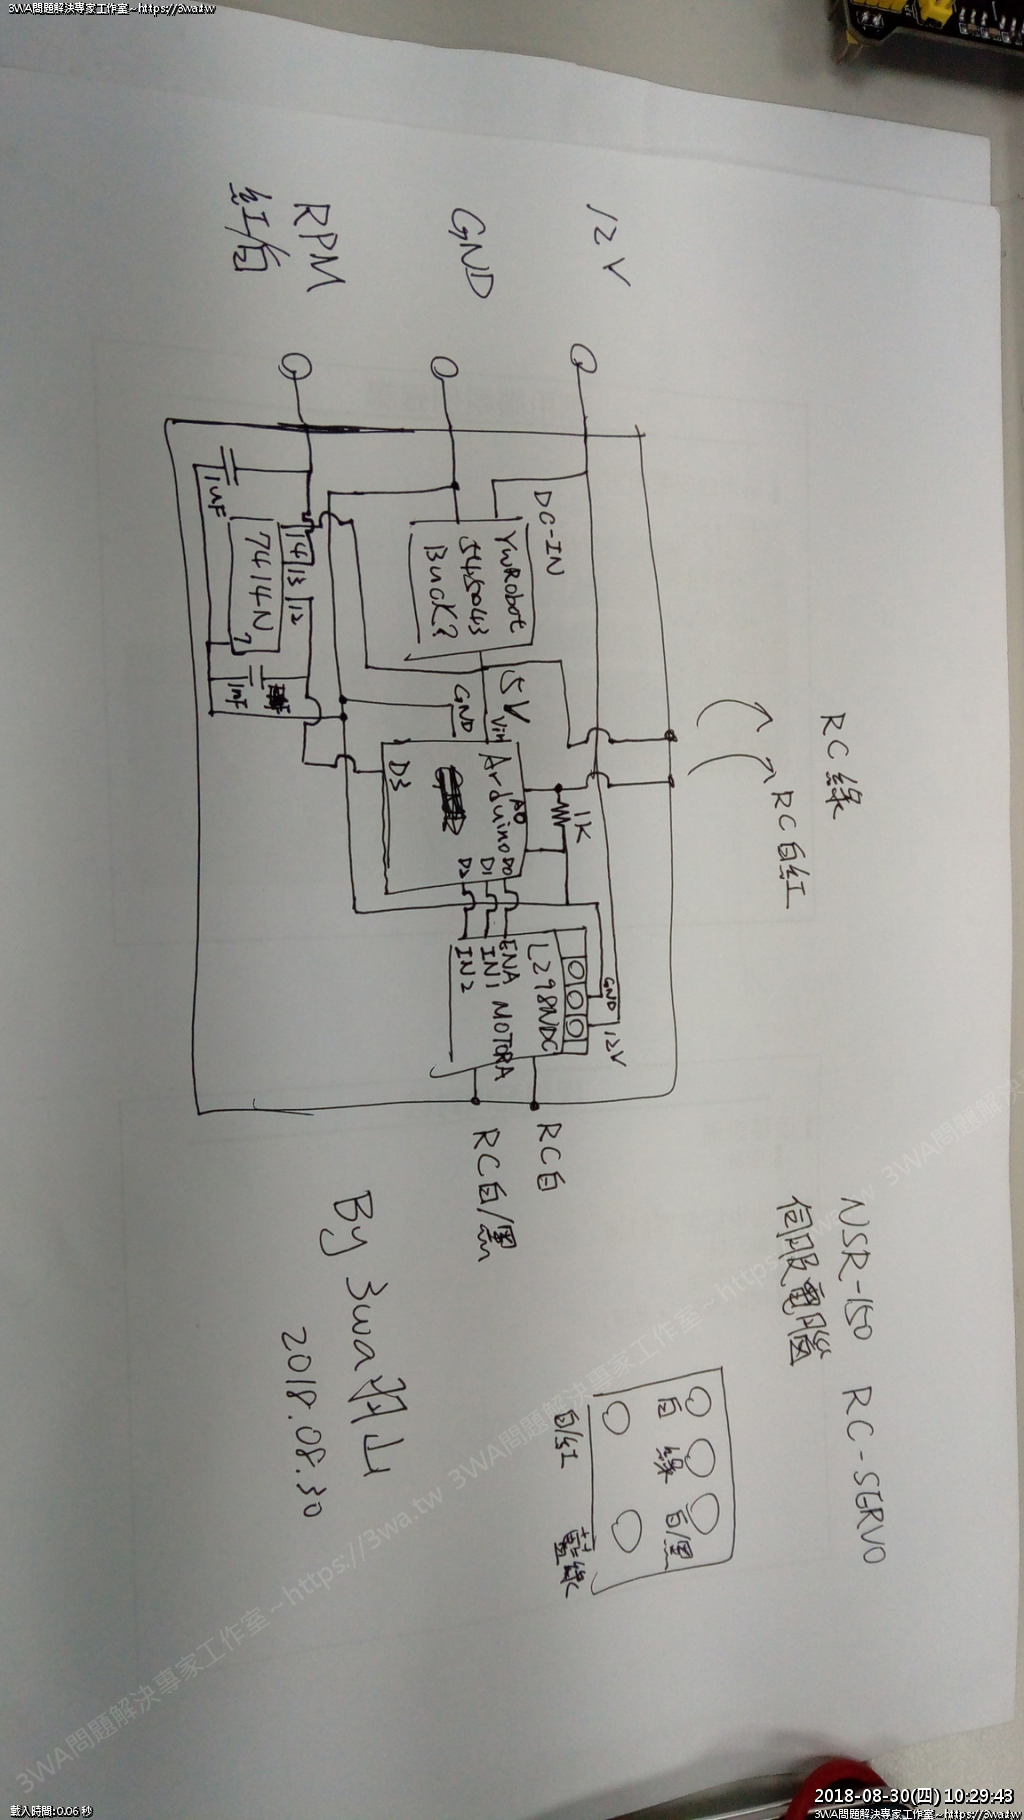 3WA問題解決專家工作室~https://3wa.tw
12V
GND
RPM
紅/白
RC綠
RC白紅
DC-IN
YwRobot
545043
Buck?
1uF
14 13 12
7414N
7
1nF
5V
GND
Vin
Arduino
A0
D3
D0
D1
D2
1K
GND
12V
L298NDC
ENA
IN1
IN2
MOTORA
RC白
RC白/黑
NSR-150 RC-SERVO
伺服電腦
白 綠 白/黑
白/紅 藍綠
By 3wa羽山
2018.08.30
3WA問題解決專家工作室~https://3wa.tw 3WA問題解決專家工作室~https://3wa.tw 3WA問題解決
載入時間:0.06 秒
2018-08-30(四) 10:29:43
3WA問題解決專家工作室~https://3wa.tw